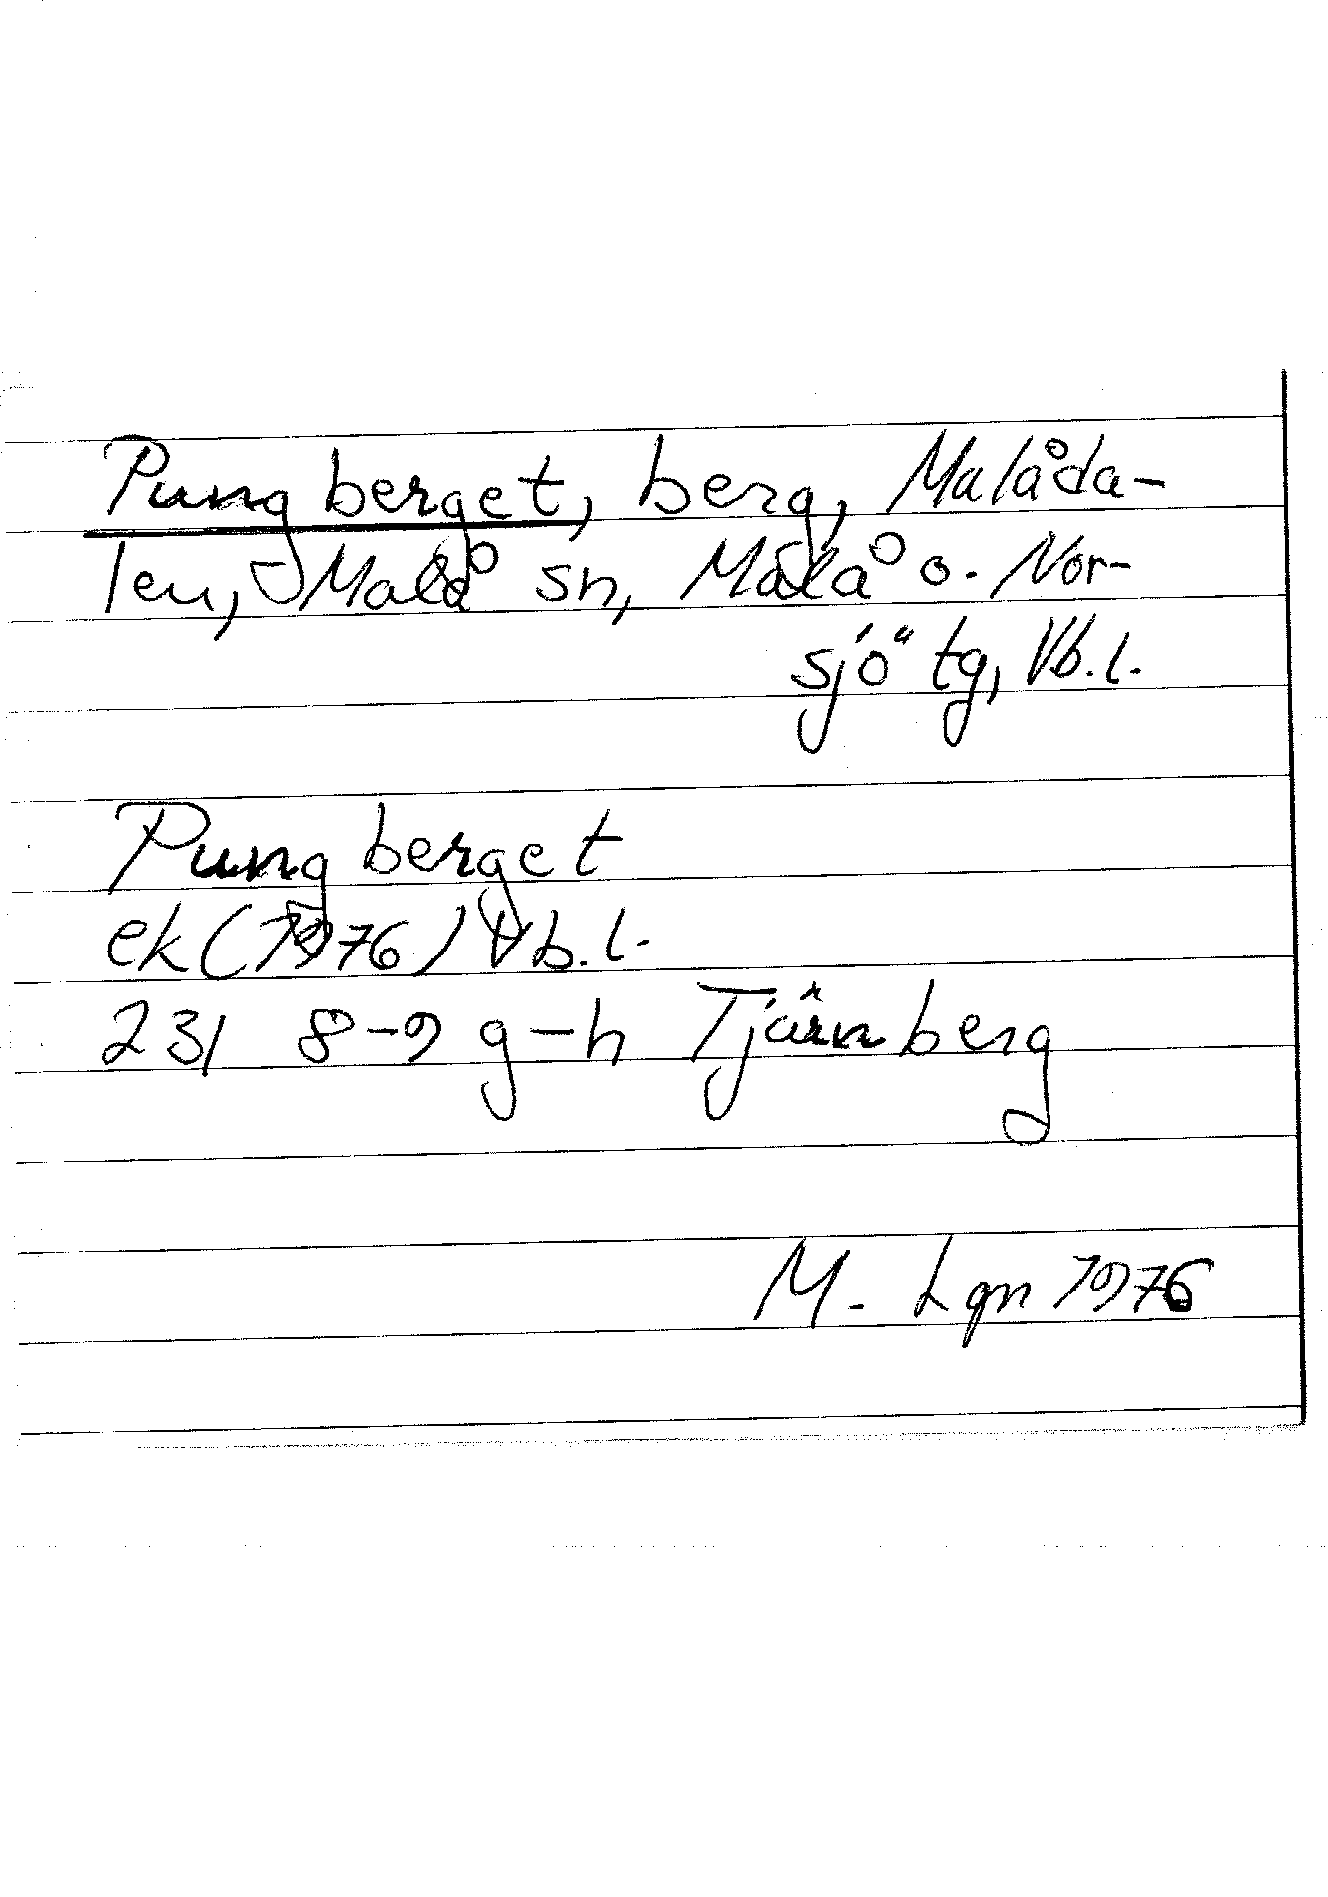 Pungberget, berg, Malåda-
len, Malå sn, Malå o. Nor-
sjö tg, Vb.l.
Pungberget
ek (1976) Vb.l.
23I 8-9 g-h Tjärnberg
M. Lgn 1976